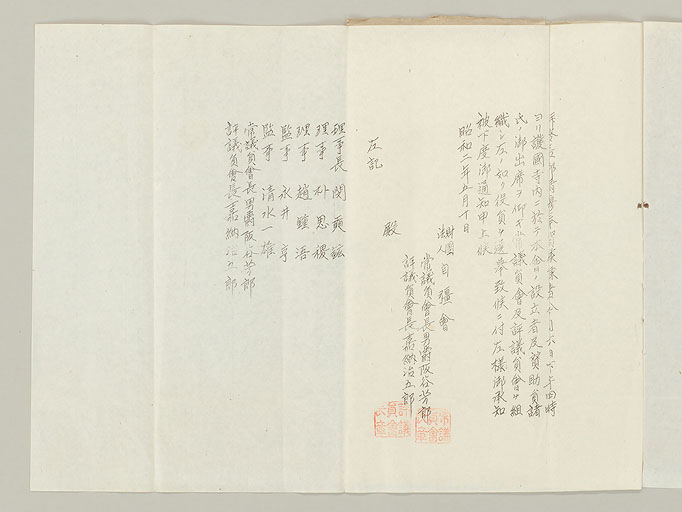 ヨリ護國寺内ニ於テ本會ノ設立者及賛助員諸
氏ノ御出席ヲ仰ギ常議員會及評議員會ヲ組
織シ左ノ如ク役員ヲ選擧致候ニ付左樣御承知
被下度御通知申上候
昭和二年五月十日
財團法人自彊會
常議員會長男爵阪谷芳郎
評議員會長嘉納治五郎
殿
左記
理事長 閔
理事 朴思稷
理事 趙鍾浯
監事 永井亨
監事 清水一雄
常議員會長男爵阪谷芳郎
評議員會長嘉納治五郎
常議員會長章
評議員會長章